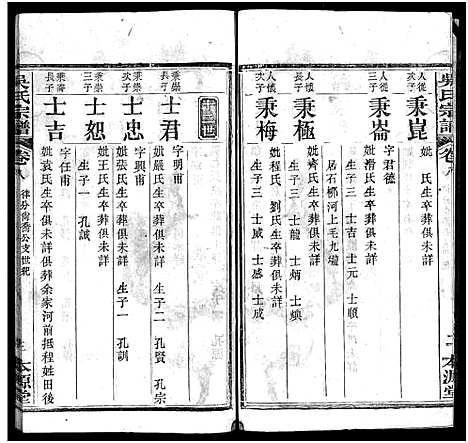 吳氏宗譜
卷八
本源堂
人從次子
秉崑
妣 氏生卒葬俱未詳
人從三子
秉崙
字君德
妣潘氏生卒葬俱未詳
生子三 士吉 士元 士順
人懷長子
秉極
居石槨河上毛九墩
妣齊氏生卒葬俱未詳
生子三 士龍 士炳 士煥
人懷次子
秉梅
妣程氏 劉氏生卒葬俱未詳
生子三 士威 士感 士成
世
秉崇長子
士君
字明甫
妣嚴氏生卒葬俱未詳 生子二 孔賢 孔宗
秉崇次子
士忠
字興甫
妣張氏生卒葬俱未詳 生子一 孔訓
秉崇三子
士恕
妣王氏生卒葬俱未詳
生子一 孔誠
秉崙長子
士吉
字任甫
妣袁氏生卒俱未詳葬余家河前抵程姓田後
吳氏宗譜
卷八
律分尚喬公支世紀
本源堂